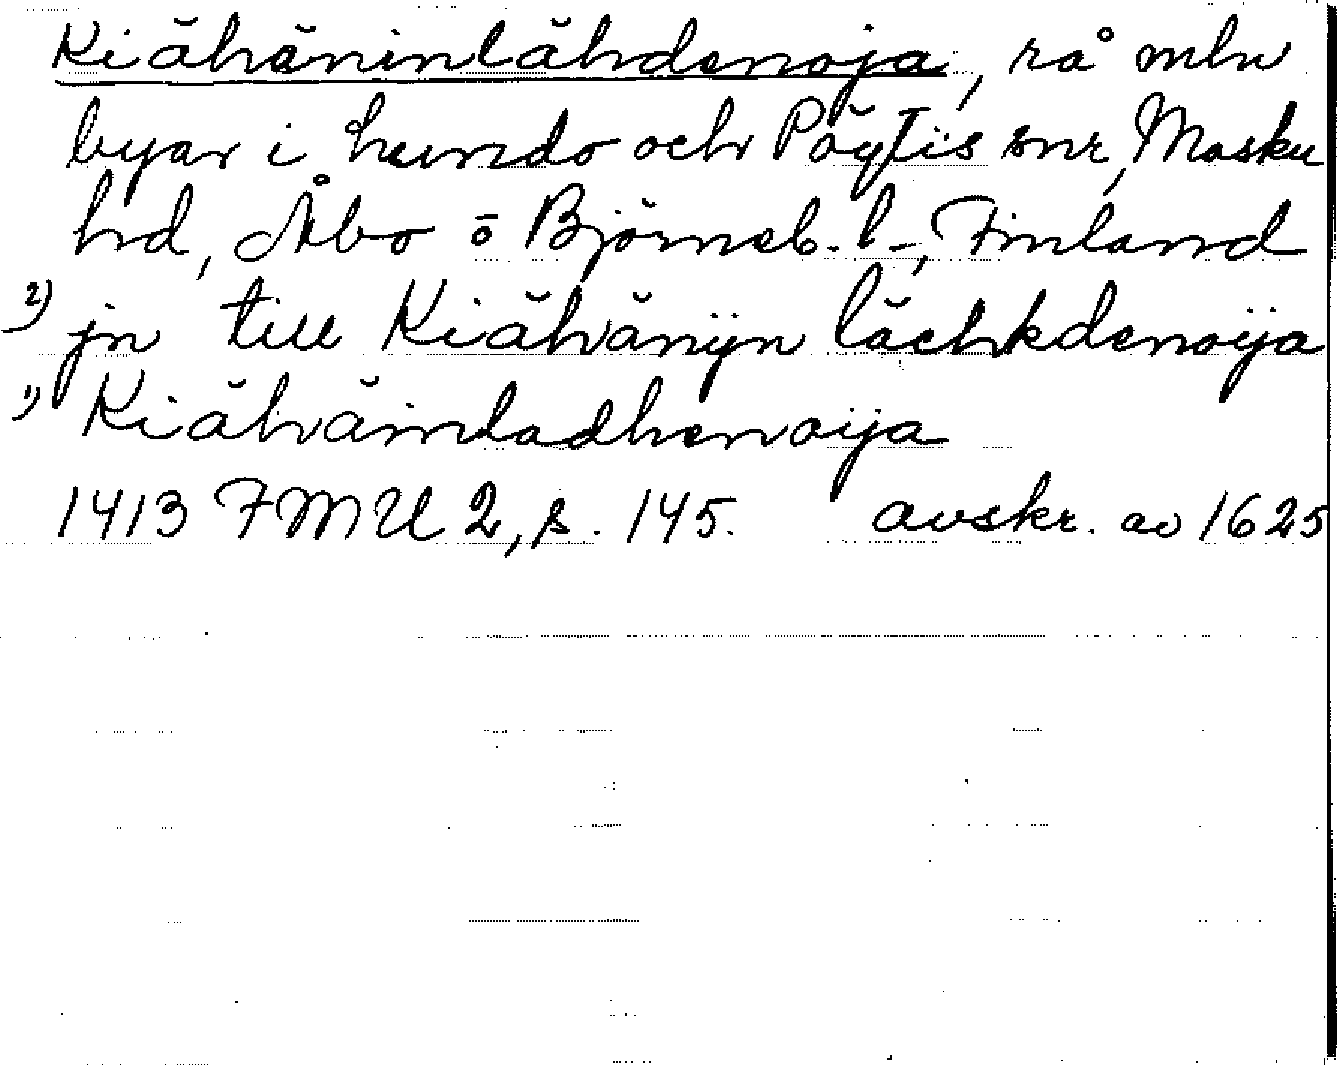 Kiähäninlähdenoja, rå mln
byar i Lundo och Pöytis snr, Masku
hd, Åbo o Björneb. l-, Finland
2) jn till Kiähänijn läehkdenoija
1) Kiähäinladhenoija
1413 FMU 2, s. 145. avskr. av 1625